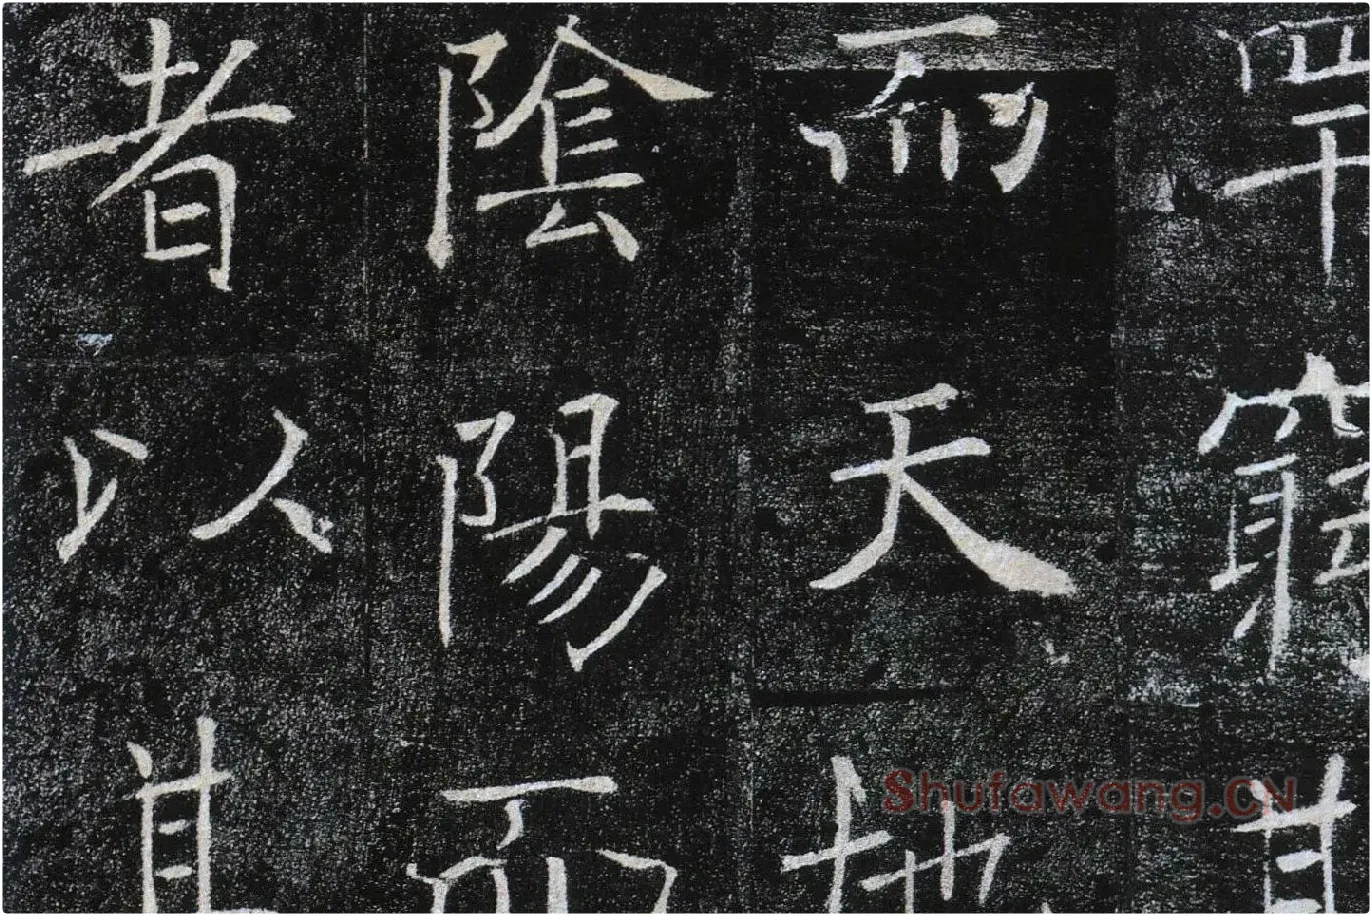 罕窮其
而天地
陰陽而
者以其
Shufawang.CN